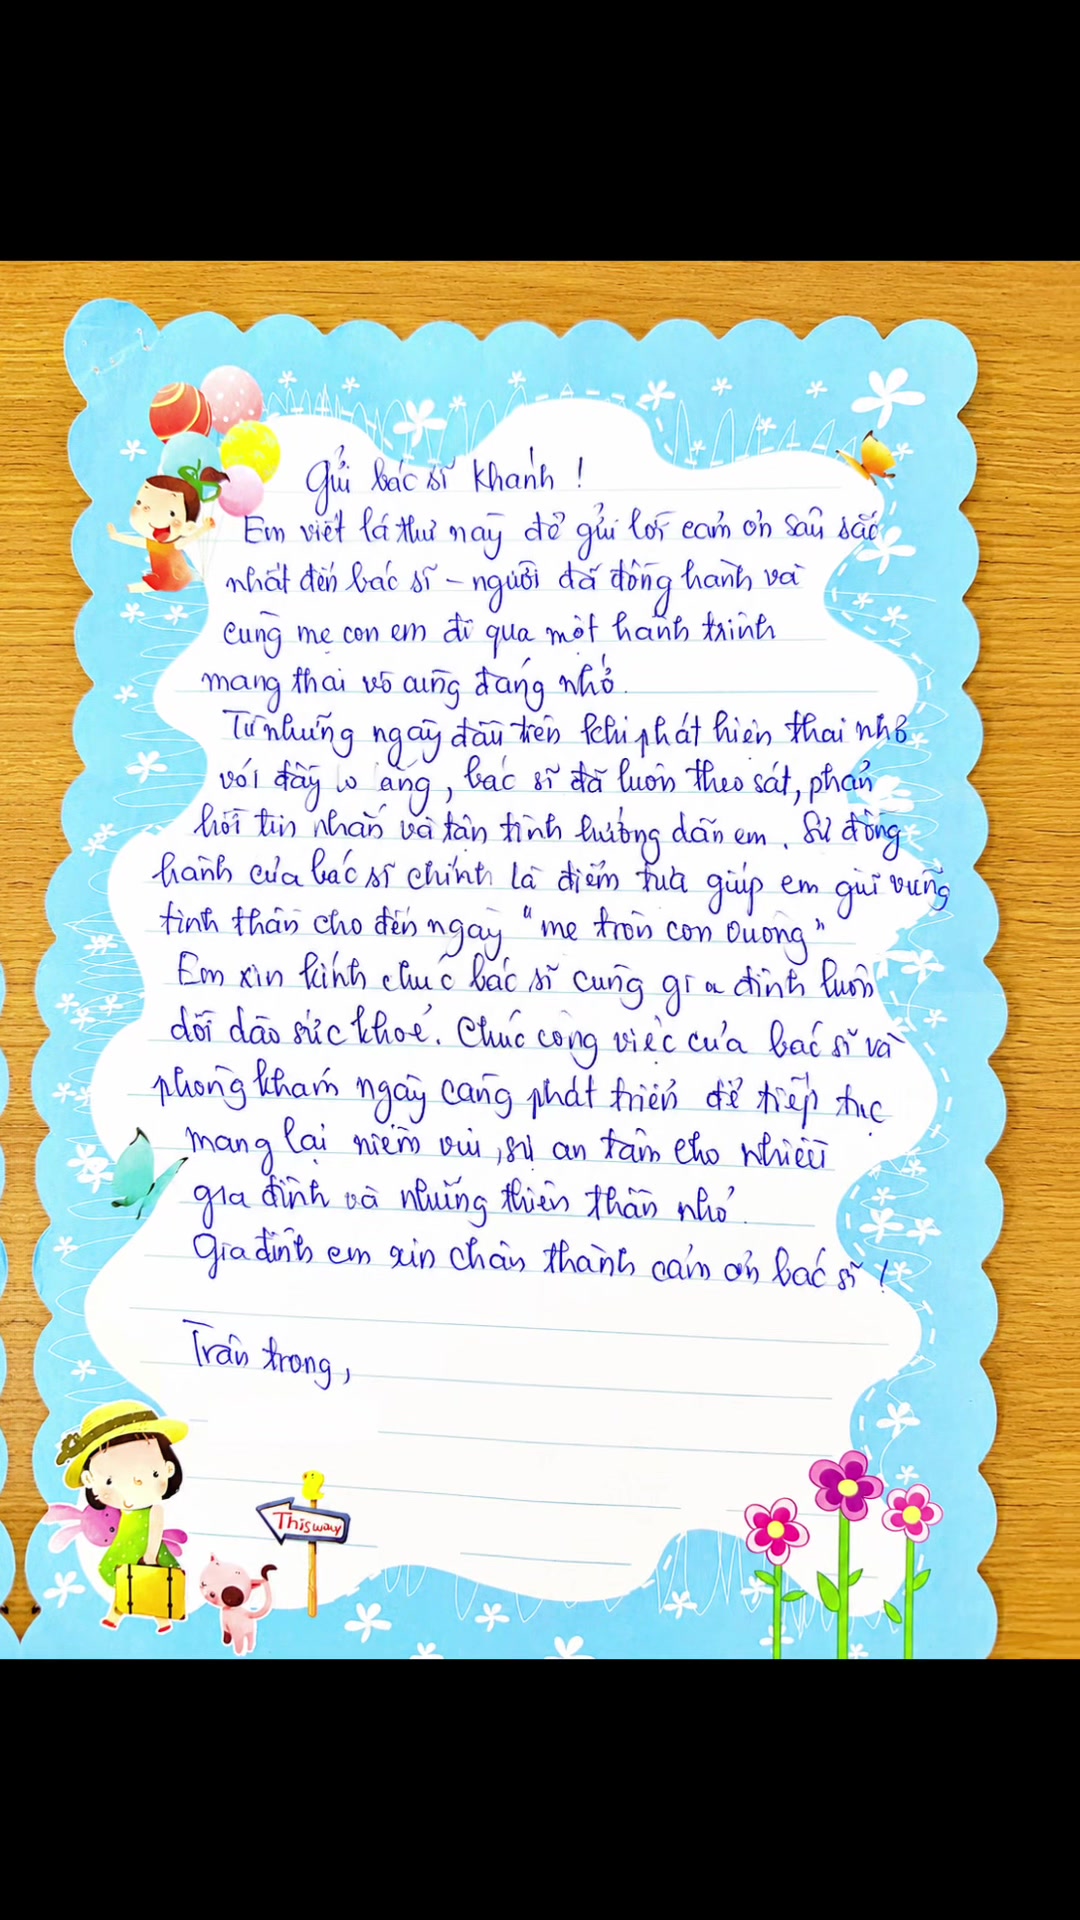 Gửi bác sĩ Khánh !
Em viết lá thư này để gửi lời cảm ơn sâu sắc
nhất đến bác sĩ – người đã đồng hành và
cùng mẹ con em đi qua một hành trình
mang thai vô cùng đáng nhớ.
Từ những ngày đầu tiên khi phát hiện thai nhỏ
với đầy lo lắng, bác sĩ đã luôn theo sát, phản
hồi tin nhắn và tận tình hướng dẫn em. Sự đồng
hành của bác sĩ chính là điểm tựa giúp em giữ vững
tinh thần cho đến ngày "mẹ tròn con vuông"
Em xin kính chúc bác sĩ cùng gia đình luôn
dồi dào sức khoẻ. Chúc công việc của bác sĩ và
phòng khám ngày càng phát triển để tiếp tục
mang lại niềm vui, sự an tâm cho nhiều
gia đình và những thiên thần nhỏ.
Gia đình em xin chân thành cảm ơn bác sĩ !
Trân trọng,
This way